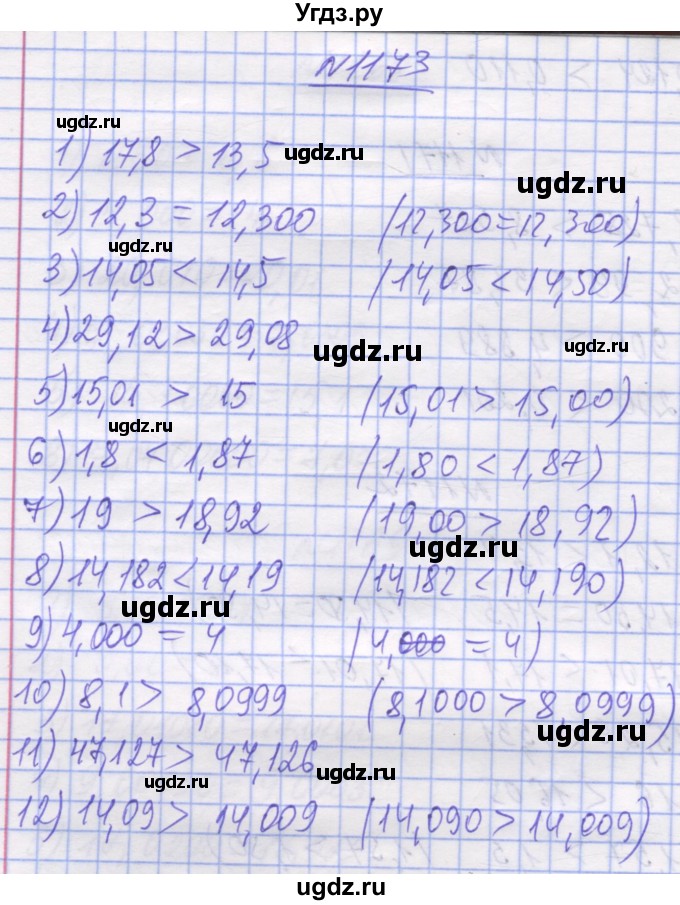 Угдз.ру
N1173
ugdz.ru
1) 17,8 > 13,5
ugdz.ru
ugdz.ru
2) 12,3 = 12,300 (12,300 = 12,300)
ugdz.ru
3) 14,05 < 14,5 (14,05 < 14,50)
4) 29,12 > 29,08
ugdz.ru
5) 15,01 > 15 (15,01 > 15,00)
ugdz.ru
6) 1,8 < 1,87 (1,80 < 1,87)
7) 19 > 18,92 (19,00 > 18,92)
ugdz.ru
8) 14,182 < 14,19 (14,182 < 14,190)
ugdz.ru
9) 4,000 = 4 (4,000 = 4)
10) 8,1 > 8,0999 (8,1000 > 8,0999)
ugdz.ru
11) 47,127 > 47,126
ugdz.ru
12) 14,09 > 14,009 (14,090 > 14,009)
ugdz.ru